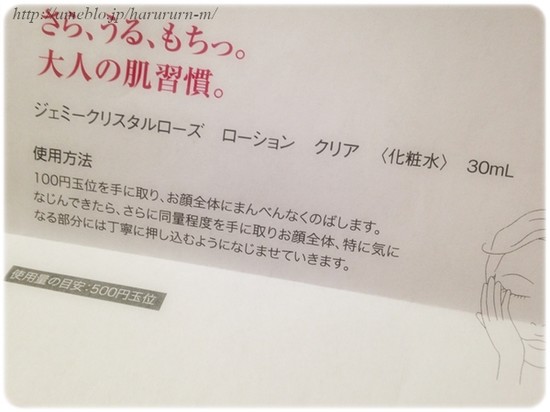 http://ameblo.jp/harururn-m/
さら、うる、もちっ。
大人の肌習慣。
ジェミークリスタルローズ ローション クリア 〈化粧水〉 30mL
使用方法
100円玉位を手に取り、お顔全体にまんべんなくのばします。
なじんできたら、さらに同量程度を手に取りお顔全体、特に気に
なる部分には丁寧に押し込むようになじませていきます。
使用量の目安:500円玉位